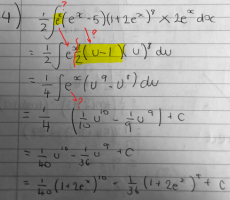 4) 1/2 ∫ e^x (e^x - 5)(1+2e^x)^8 × 2e^x dx
= 1/2 ∫ e^x 1/2 (u-1)(u)^8 du
= 1/4 ∫ e^x (u^9 - u^8) du
= 1/4 (1/10 u^10 - 1/9 u^9) + C
= 1/40 u^10 - 1/36 u^9 + C
= 1/40 (1+2e^x)^10 - 1/36 (1+2e^x)^9 + C